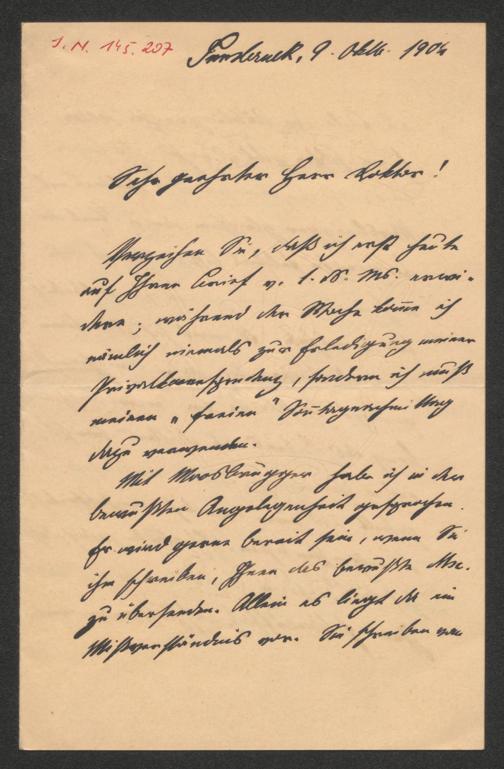 J. N. 145.207
Innsbruck, 9. Oktb. 1904
Sehr geehrter Herr Doktor!
Verzeihen Sie, daß ich erst heute
auf Ihren Brief v. 1. d. Ms. erwi-
dere; während der Woche komme ich
nämlich niemals zur Erledigung meiner
Privatkorrespondenz, sondern ich muß
meinen „freien“ Sonntagnachmittag
dazu verwenden.
Mit Moosbrugger habe ich in der
bewußten Angelegenheit gesprochen.
Er wird gerne bereit sein, wenn Sie
ihm schreiben, Ihnen das bewußte Msc.
zu übersenden. Allein es liegt da ein
Mißverständnis vor. Sie schreiben von